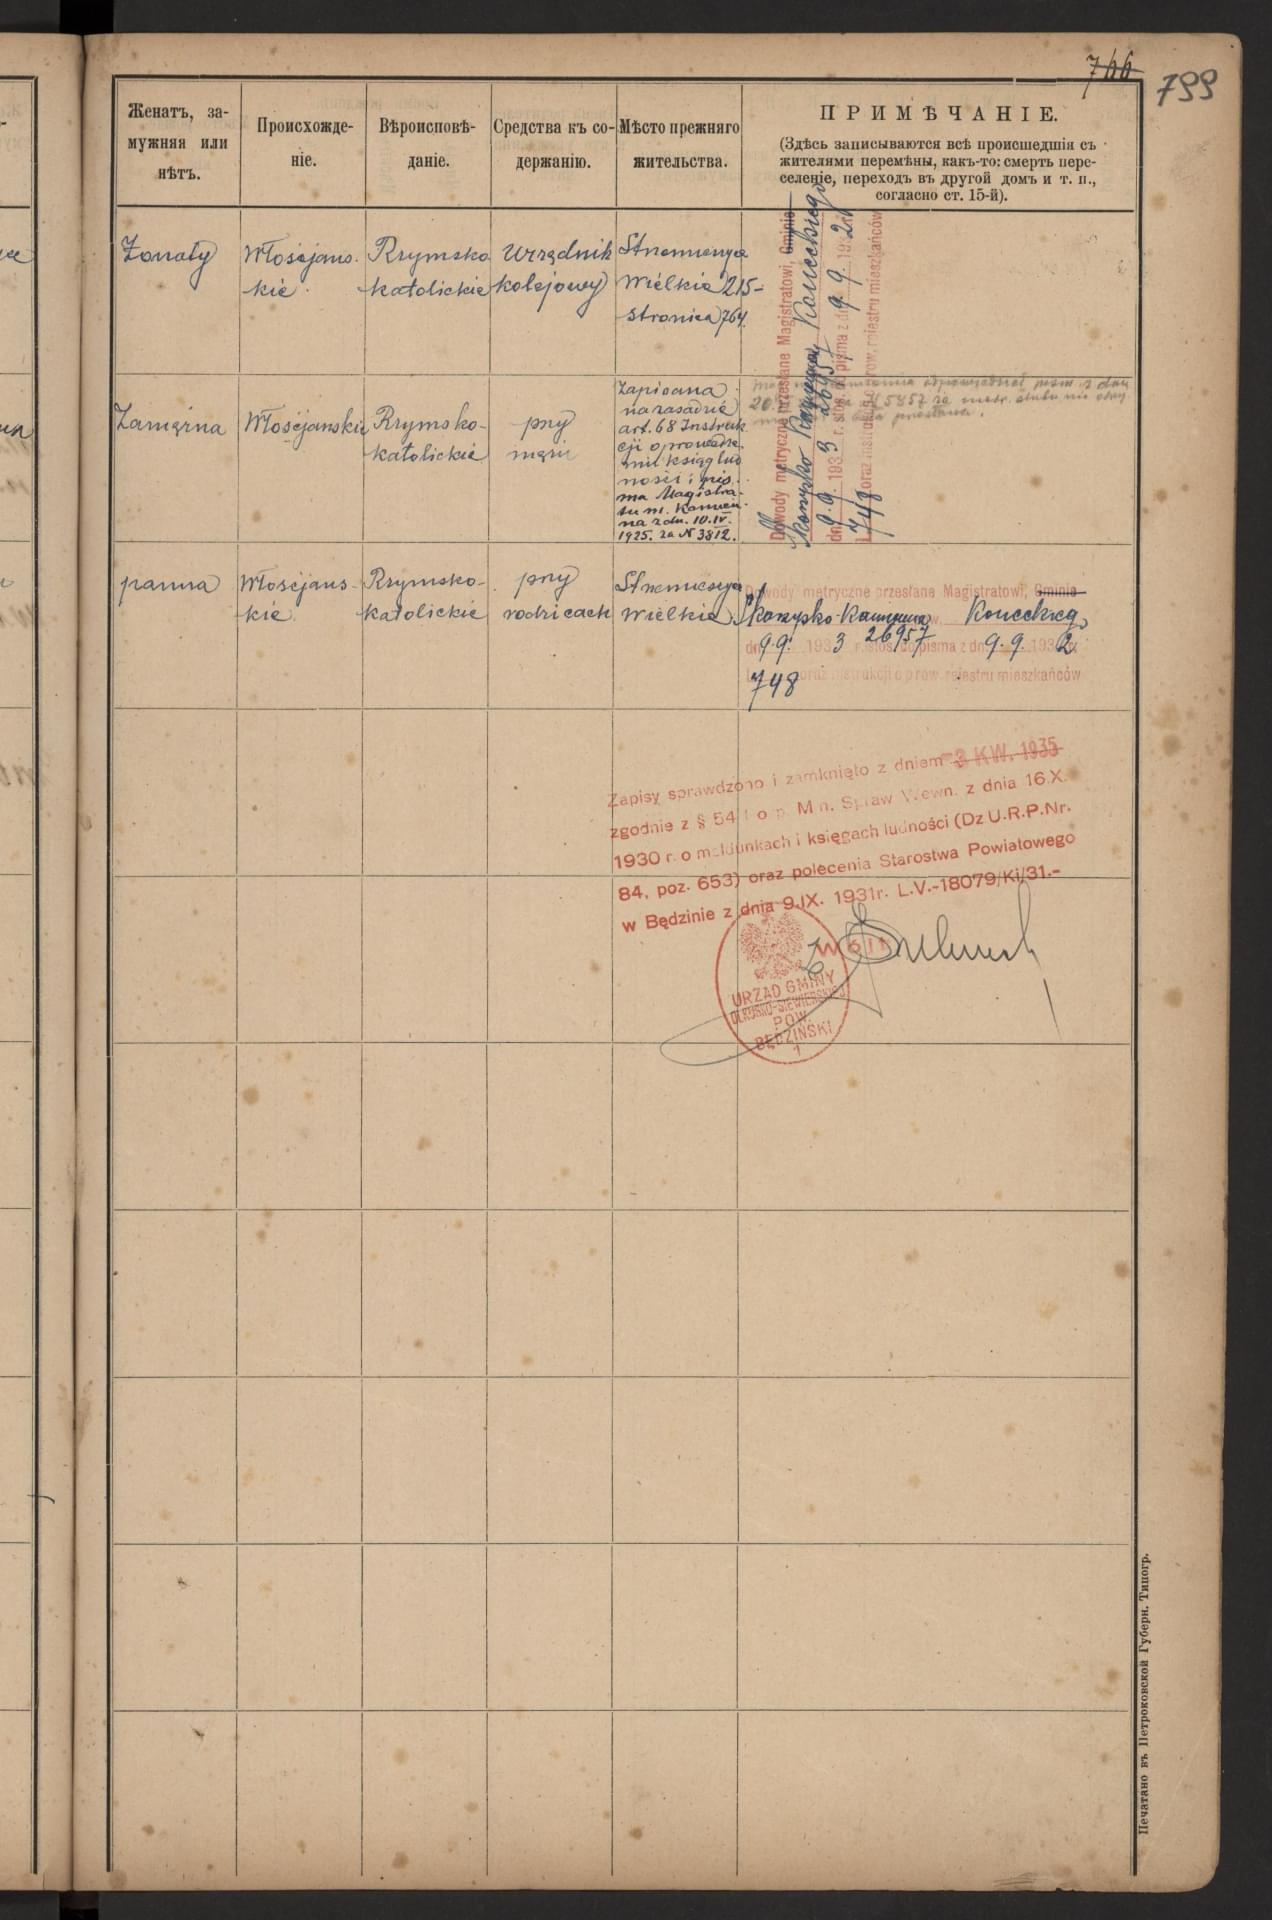 766
799
Женатъ, за-
мужняя или
нѣтъ.
Происхожде-
ніе.
Вѣроисповѣ-
даніе.
Средства къ со-
держанію.
Мѣсто прежняго
жительства.
ПРИМѢЧАНІЕ.
(Здѣсь записываются всѣ происшедшія съ
жителями перемѣны, какъ-то: смерть пере-
селеніе, переходъ въ другой домъ и т. п.,
согласно ст. 15-й).
Żonaty
Włościańs-
kie
Rzymsko
katolickie
Urzędnik
kolejowy
Strzemieszyce
Wielkie 215-
stronica 764.
Dowody metryczne przesłane Magistratowi, Gminie
Skarżysko Kamienna Koneckiego
26957
dn. 9.9. 1933 r. stos. do pisma z dn. 9.9 1932 r.
L. 748 oraz instrukcji o prow. rejestru mieszkańców
Zamężna
Włościańskie
Rzymsko-
katolickie
przy
mężu
Zapisana
na zasadzie
art. 68 Instruk
cji o prowadze
niu ksiąg lud
ności i pis
ma Magistra-
tu m. Kamien-
na z dn. 10.IV.
1925. za N 3812.
odpowiedział pism. z dnia
20 5857 za metr. ślubu nie
panna
Włościańs-
kie
Rzymsko-
katolickie
przy
rodzicach
Strzemieszyce
Wielkie
Dowody metryczne przesłane Magistratowi, Gminie
Skarżysko-Kamienna Koneckiego
26957
dn. 9.9. 1933 r. stos. do pisma z dn. 9.9. 1932 r.
748 oraz instrukcji o prow. rejestru mieszkańców
Zapisy sprawdzono i zamknięto z dniem -3 KW. 1935
zgodnie z § 54 rozp. Min. Spraw Wewn. z dnia 16.X.
1930 r. o meldunkach i księgach ludności (Dz U.R.P.Nr.
84, poz. 653) oraz polecenia Starostwa Powiatowego
w Będzinie z dnia 9.IX. 1931r. L.V.-18079/Ki/31.-
Wójt
URZĄD GMINY
OLKUSKO-SIEWIERSKIEJ
POW.
BĘDZIŃSKI
1
Печатано въ Петроковской Губерн. Типогр.